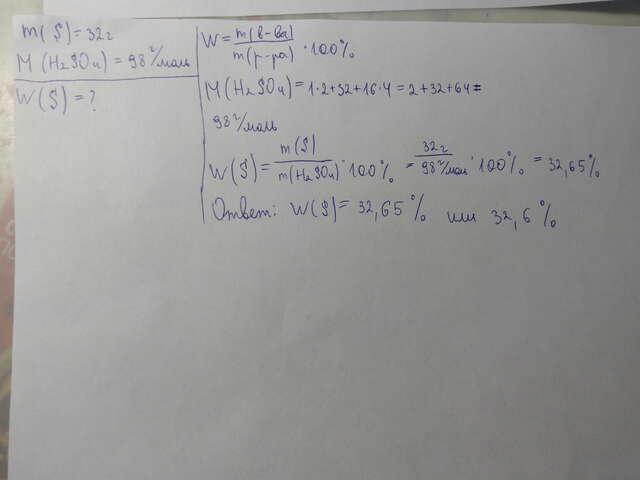 m(S)=32г
M(H₂SO₄)=98 г/моль
W(S)=?
W=m(в-ва)/m(р-ра)·100%
M(H₂SO₄)=1·2+32+16·4=2+32+64=
98 г/моль
W(S)=m(S)/m(H₂SO₄)·100%=32г/98 г/моль·100%=32,65%
Ответ: W(S)=32,65% или 32,6%